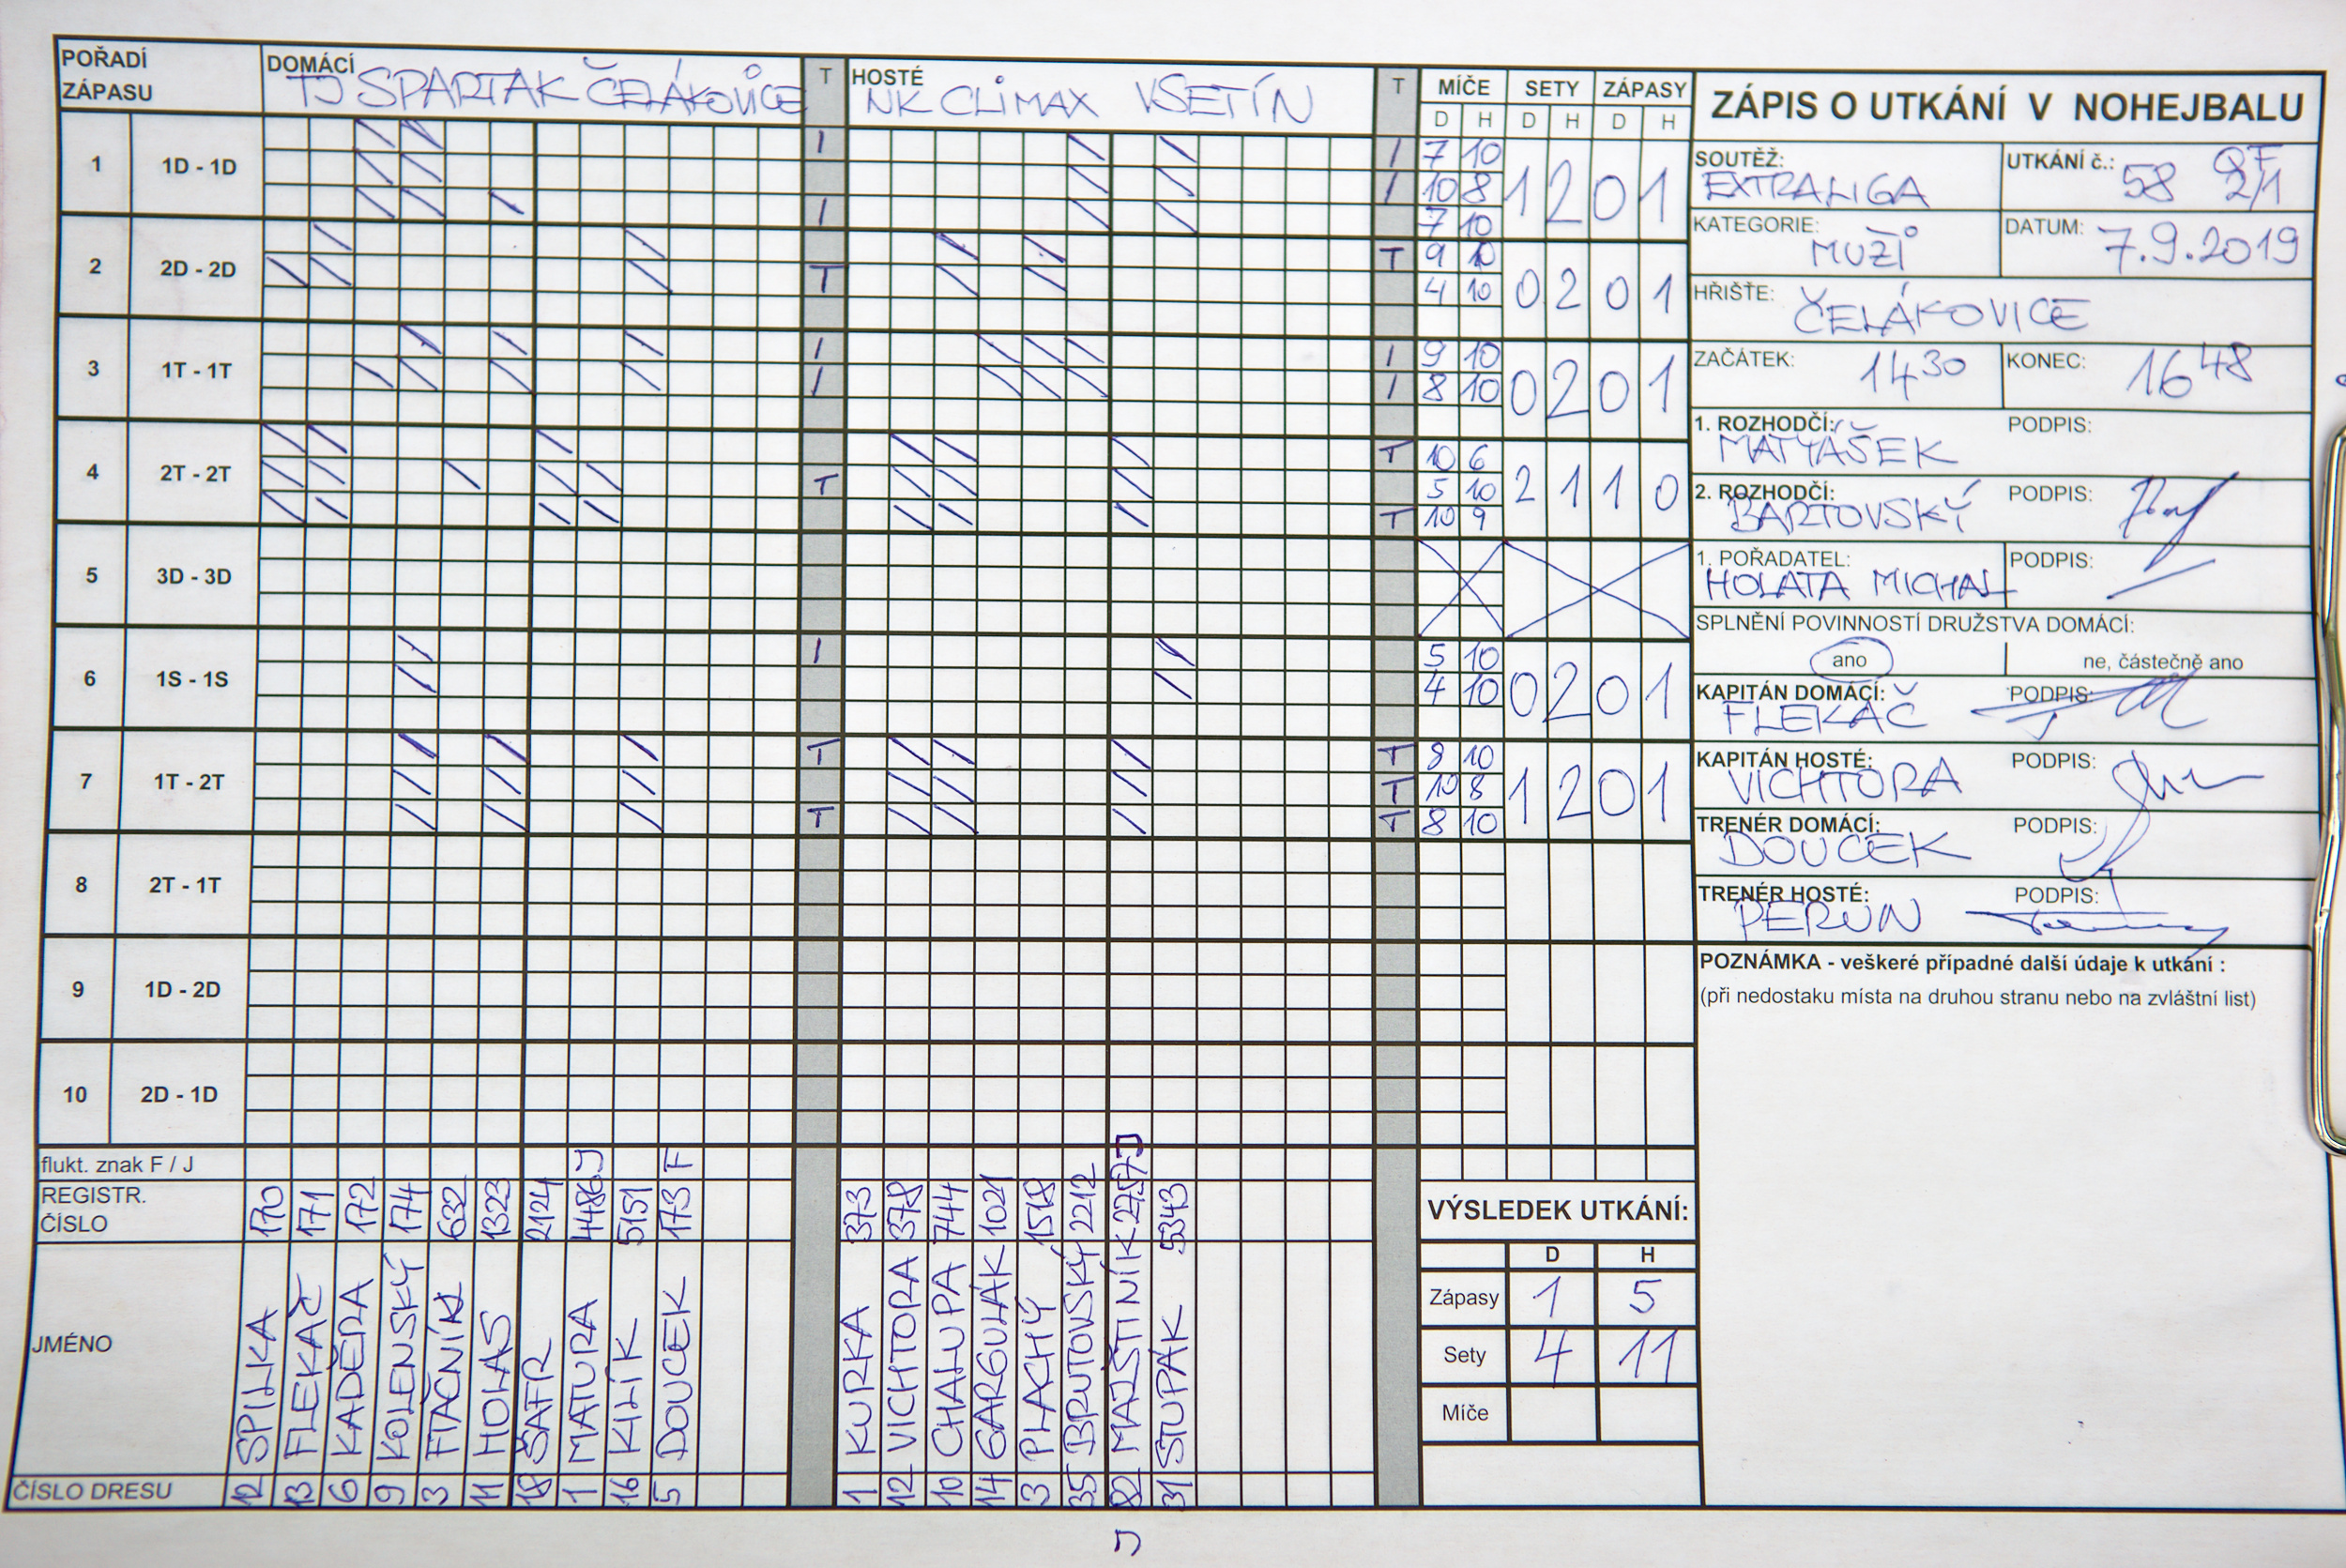 POŘADÍ ZÁPASU DOMÁCÍ TJ SPARTAK ČELÁKOVICE T HOSTÉ NK CLIMAX VSETÍN T MÍČE SETY ZÁPASY
D H D H D H
1 1D - 1D I I 7 10 1 2 0 1
I 10 8
I 7 10
2 2D - 2D T 9 10 0 2 0 1
T 4 10
3 1T - 1T I I 9 10 0 2 0 1
I I 8 10
4 2T - 2T T 10 6 2 1 1 0
T 5 10
T 10 9
5 3D - 3D
6 1S - 1S I 5 10 0 2 0 1
4 10
7 1T - 2T T T 8 10 1 2 0 1
T 10 8
T T 8 10
8 2T - 1T
9 1D - 2D
10 2D - 1D
flukt. znak F / J J F J
REGISTR. ČÍSLO 170 171 172 174 632 1323 2124 4486 5151 173 373 378 744 1021 1518 2212 5343
JMÉNO SPILKA FLEKAČ KADĚRA KOLENSKÝ FTAČNÍK HOLAS ŠAFR MATURA KILÍK DOUCEK KURKA VICHTORA CHALUPA GARGULÁK PLACHÝ BRUTOVSKÝ MAŠTNÍK STUPÁK
ČÍSLO DRESU 12 13 6 9 3 11 18 1 16 5 1 12 10 14 3 35 82 31
J
ZÁPIS O UTKÁNÍ V NOHEJBALU
SOUTĚŽ: EXTRALIGA UTKÁNÍ č.: 58 QF 2/1
KATEGORIE: MUŽI DATUM: 7.9.2019
HŘIŠTE: ČELÁKOVICE
ZAČÁTEK: 14 30 KONEC: 16 48
1. ROZHODČÍ: MATYÁŠEK PODPIS:
2. ROZHODČÍ: BARTOVSKÝ PODPIS:
1. POŘADATEL: HOLATA MICHAL PODPIS:
SPLNĚNÍ POVINNOSTÍ DRUŽSTVA DOMÁCÍ:
ano ne, částečně ano
KAPITÁN DOMÁCÍ: FLEKAČ PODPIS:
KAPITÁN HOSTÉ: VICHTORA PODPIS:
TRENÉR DOMÁCÍ: DOUCEK PODPIS:
TRENÉR HOSTÉ: PERUN PODPIS:
POZNÁMKA - veškeré případné další údaje k utkání :
(při nedostaku místa na druhou stranu nebo na zvláštní list)
VÝSLEDEK UTKÁNÍ:
D H
Zápasy 1 5
Sety 4 11
Míče